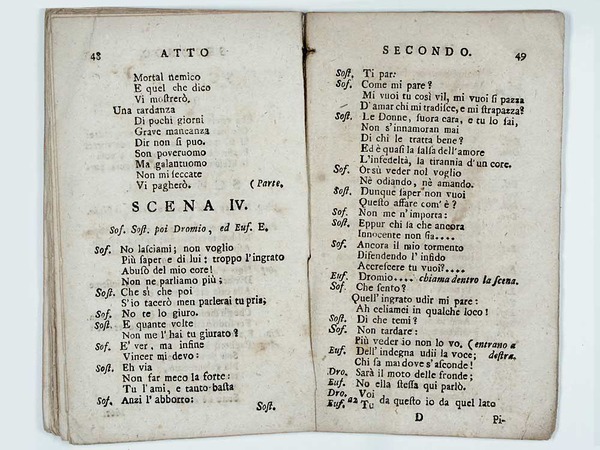 48 ATTO
Mortal nemico
E quel che dico
Vi mostrerò.
Una tardanza
Di pochi giorni
Grave mancanza
Dir non si puo.
Son poveruomo
Ma galantuomo
Non mi seccate
Vi pagherò. (Parte.
SCENA IV.
Sof. Sost. poi Dromio, ed Euf. E.
Sof. No lasciami; non voglio
Più saper e di lui: troppo l'ingrato
Abusò del mio core!
Non ne parliamo più;
Sost. Che sì che poi
S'io tacerò men parlerai tu pria;
Sof. No te lo giuro.
Sost. E quante volte
Non me l'hai tu giurato?
Sof. E' ver, ma infine
Vincer mi devo:
Sost. Eh via
Non far meco la forte:
Tu l'ami, e tanto basta
Sof. Anzi l'abborro:
Sost.
SECONDO. 49
Sost. Ti par:
Sof. Come mi pare?
Mi vuoi tu così vil, mi vuoi si pazza
D'amar chi mi tradisce, e mi strapazza?
Sost. Le Donne, suora cara, e tu lo sai,
Non s'innamoran mai
Di chi le tratta bene?
Ed è quasi la salsa dell'amore
L'infedeltà, la tirannia d'un core.
Sof. Orsù veder nol voglio
Nè odiando, nè amando.
Sost. Dunque saper non vuoi
Questo affare com'è?
Sof. Non me n'importa:
Sost. Eppur chi sa che ancora
Innocente non sia....
Sof. Ancora il mio tormento
Difendendo l'infido
Accrescere tu vuoi?....
Euf. Dromio.... chiama dentro la scena.
Sof. Che sento?
Quell'ingrato udir mi pare:
Ah celiamei in qualche loco!
Sost. Di che temi?
Sof. Non tardare:
Più veder io non lo vo. (entrano a
Euf. Dell'indegna udii la voce; destra.
Chi sa mai dove s'asconde!
Dro. Sarà il moto delle fronde;
Euf. No ella stessa qui parlò.
Dro. Voi
Euf. a2 Tu da questo io da quel lato
D Pi-